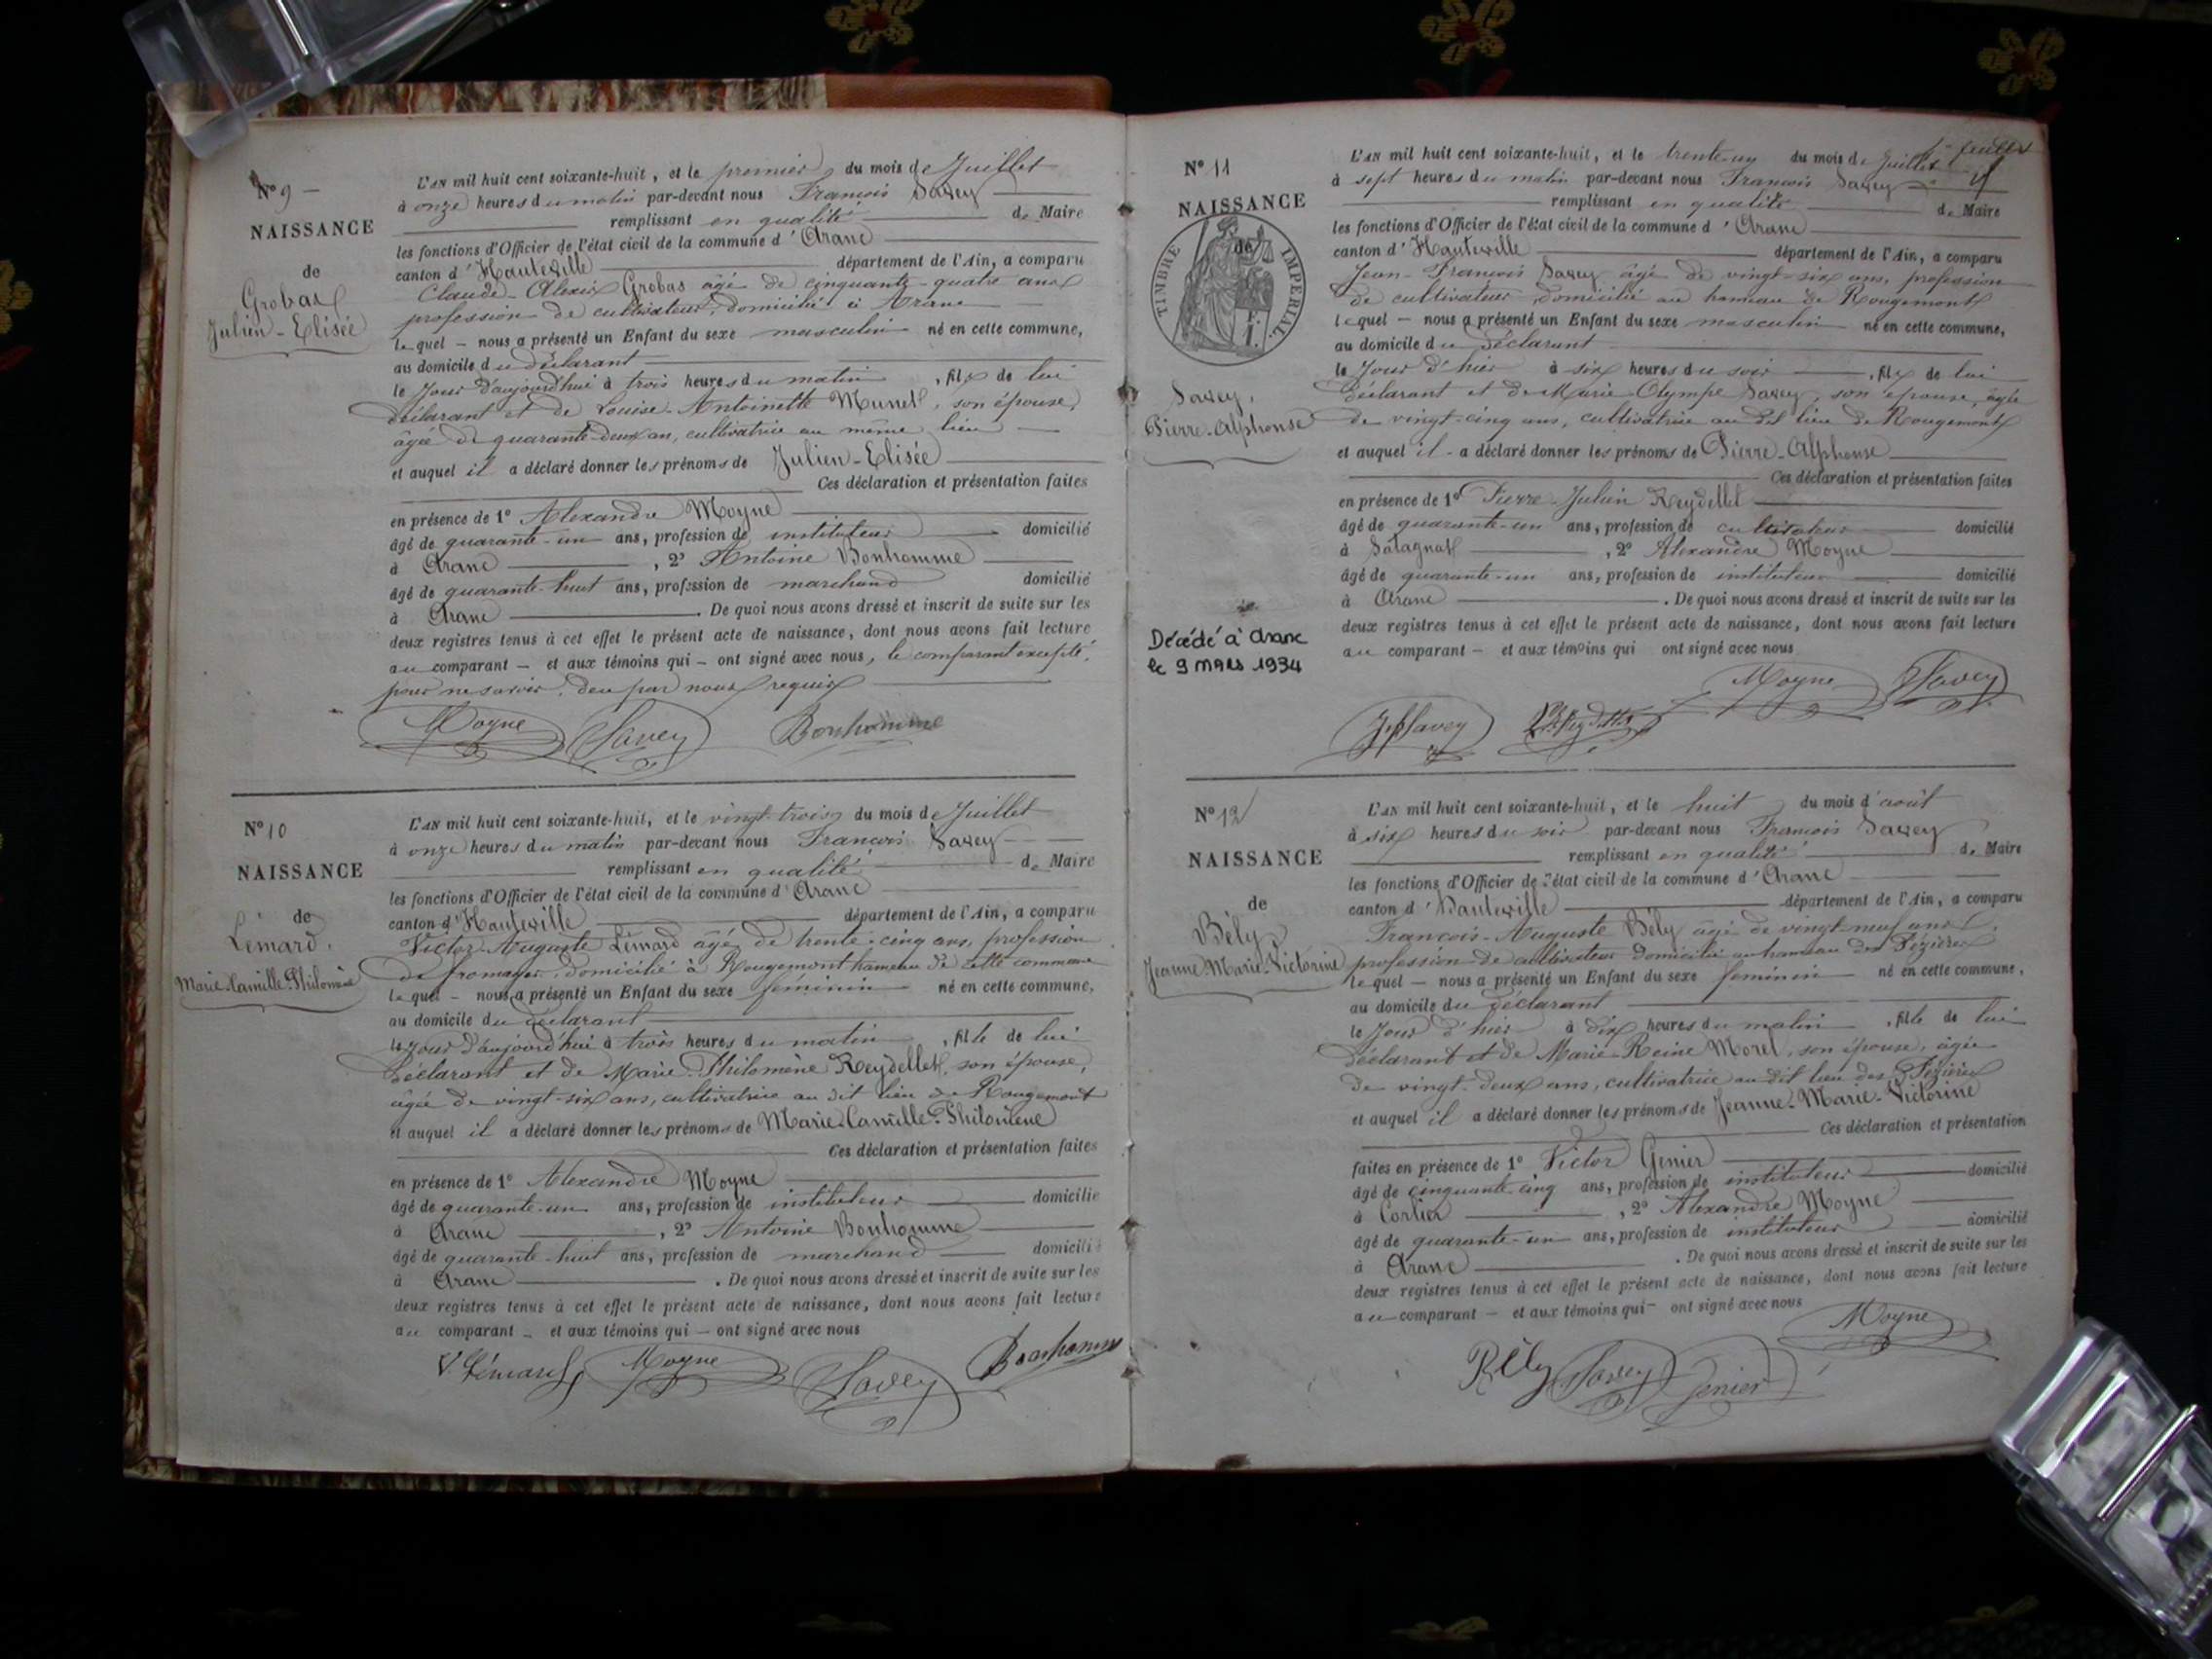 N° 9 —
NAISSANCE
de
Grobas
Julien-Elisée
L'AN mil huit cent soixante-huit, et le premier du mois de Juillet
à onze heures du matin par-devant nous François Savey
remplissant en qualité de Maire
les fonctions d'Officier de l'état civil de la commune d'Aranc
canton d'Hauteville département de l'Ain, a comparu
Claude-Alexis Grobas âgé de cinquante-quatre ans
profession de cultivateur, domicilié à Aranc
lequel — nous a présenté un Enfant du sexe masculin né en cette commune,
au domicile du déclarant
le Jour d'aujourd'hui à trois heures du matin, fils de lui
déclarant et de Louise-Antoinette Munet, son épouse,
âgée de quarante-deux an, cultivatrice au même lieu
et auquel il a déclaré donner les prénoms de Julien-Elisée
Ces déclaration et présentation faites
en présence de 1° Alexandre Moyne
âgé de quarante-un ans, profession de instituteur domicilié
à Aranc, 2° Antoine Bonhomme
âgé de quarante-huit ans, profession de marchand domicilié
à Aranc. De quoi nous avons dressé et inscrit de suite sur les
deux registres tenus à cet effet le présent acte de naissance, dont nous avons fait lecture
au comparant — et aux témoins qui — ont signé avec nous, le comparant excepté,
pour ne savoir, de ce par nous requis
Moyne Savey Bonhomme
N° 10
NAISSANCE
de
Lémard,
Marie-Camille-Philomène
L'AN mil huit cent soixante-huit, et le vingt-trois du mois de Juillet
à onze heures du matin par-devant nous François Savey
remplissant en qualité de Maire
les fonctions d'Officier de l'état civil de la commune d'Aranc
canton d'Hauteville département de l'Ain, a comparu
Victor-Auguste Lémard âgé de trente-cinq ans, profession
de fromager, domicilié à Rougemont hameau de cette commune
lequel — nous a présenté un Enfant du sexe féminin né en cette commune,
au domicile du déclarant
le Jour d'aujourd'hui à trois heures du matin, fille de lui
déclarant et de Marie-Philomène Reydellet, son épouse,
âgée de vingt-six ans, cultivatrice au dit lieu de Rougemont
et auquel il a déclaré donner les prénoms de Marie-Camille-Philomène
Ces déclaration et présentation faites
en présence de 1° Alexandre Moyne
âgé de quarante-un ans, profession de instituteur domicilié
à Aranc, 2° Antoine Bonhomme
âgé de quarante-huit ans, profession de marchand domicilié
à Aranc. De quoi nous avons dressé et inscrit de suite sur les
deux registres tenus à cet effet le présent acte de naissance, dont nous avons fait lecture
au comparant — et aux témoins qui — ont signé avec nous
V. Lémard Moyne Savey Bonhomme
N° 11
NAISSANCE
de
TIMBRE IMPÉRIAL
Savey,
Pierre-Alphonse
Décédé à Aranc
le 9 mars 1934
L'AN mil huit cent soixante-huit, et le trente-un du mois de Juillet
à sept heures du matin par-devant nous François Savey
remplissant en qualité de Maire
les fonctions d'Officier de l'état civil de la commune d'Aranc
canton d'Hauteville département de l'Ain, a comparu
Jean-François Savey âgé de vingt-six ans, profession
de cultivateur, domicilié au hameau de Rougemont
lequel — nous a présenté un Enfant du sexe masculin né en cette commune,
au domicile du déclarant
le Jour d'hier à six heures du soir, fils de lui
déclarant et de Marie-Olympe Savey, son épouse, âgée
de vingt-cinq ans, cultivatrice au dit lieu de Rougemont
et auquel il - a déclaré donner les prénoms de Pierre-Alphonse
Ces déclaration et présentation faites
en présence de 1° Pierre-Julien Reydellet
âgé de quarante-un ans, profession de cultivateur domicilié
à Satagnat, 2° Alexandre Moyne
âgé de quarante-un ans, profession de instituteur domicilié
à Aranc. De quoi nous avons dressé et inscrit de suite sur les
deux registres tenus à cet effet le présent acte de naissance, dont nous avons fait lecture
au comparant — et aux témoins qui ont signé avec nous
Moyne Savey
JfSavey Reydellet
N° 12
NAISSANCE
de
Bély
Jeanne-Marie-Victorine
L'AN mil huit cent soixante-huit, et le huit du mois d'août
à six heures du soir par-devant nous François Savey
remplissant en qualité de Maire
les fonctions d'Officier de l'état civil de la commune d'Aranc
canton d'Hauteville département de l'Ain, a comparu
François-Auguste Bély âgé de vingt-neuf ans,
profession de cultivateur domicilié au hameau des Pézières
lequel — nous a présenté un Enfant du sexe féminin né en cette commune,
au domicile du déclarant
le Jour d'hier à dix heures du matin, fille de lui
déclarant et de Marie-Reine Morel, son épouse, âgée
de vingt-deux ans, cultivatrice au dit lieu des Pézières
et auquel il a déclaré donner les prénoms de Jeanne-Marie-Victorine
Ces déclaration et présentation
faites en présence de 1° Victor Genier
âgé de cinquante-cinq ans, profession de instituteur domicilié
à Corlier, 2° Alexandre Moyne
âgé de quarante-un ans, profession de instituteur domicilié
à Aranc. De quoi nous avons dressé et inscrit de suite sur les
deux registres tenus à cet effet le présent acte de naissance, dont nous avons fait lecture
au comparant — et aux témoins qui — ont signé avec nous
Moyne
Bély Savey Genier